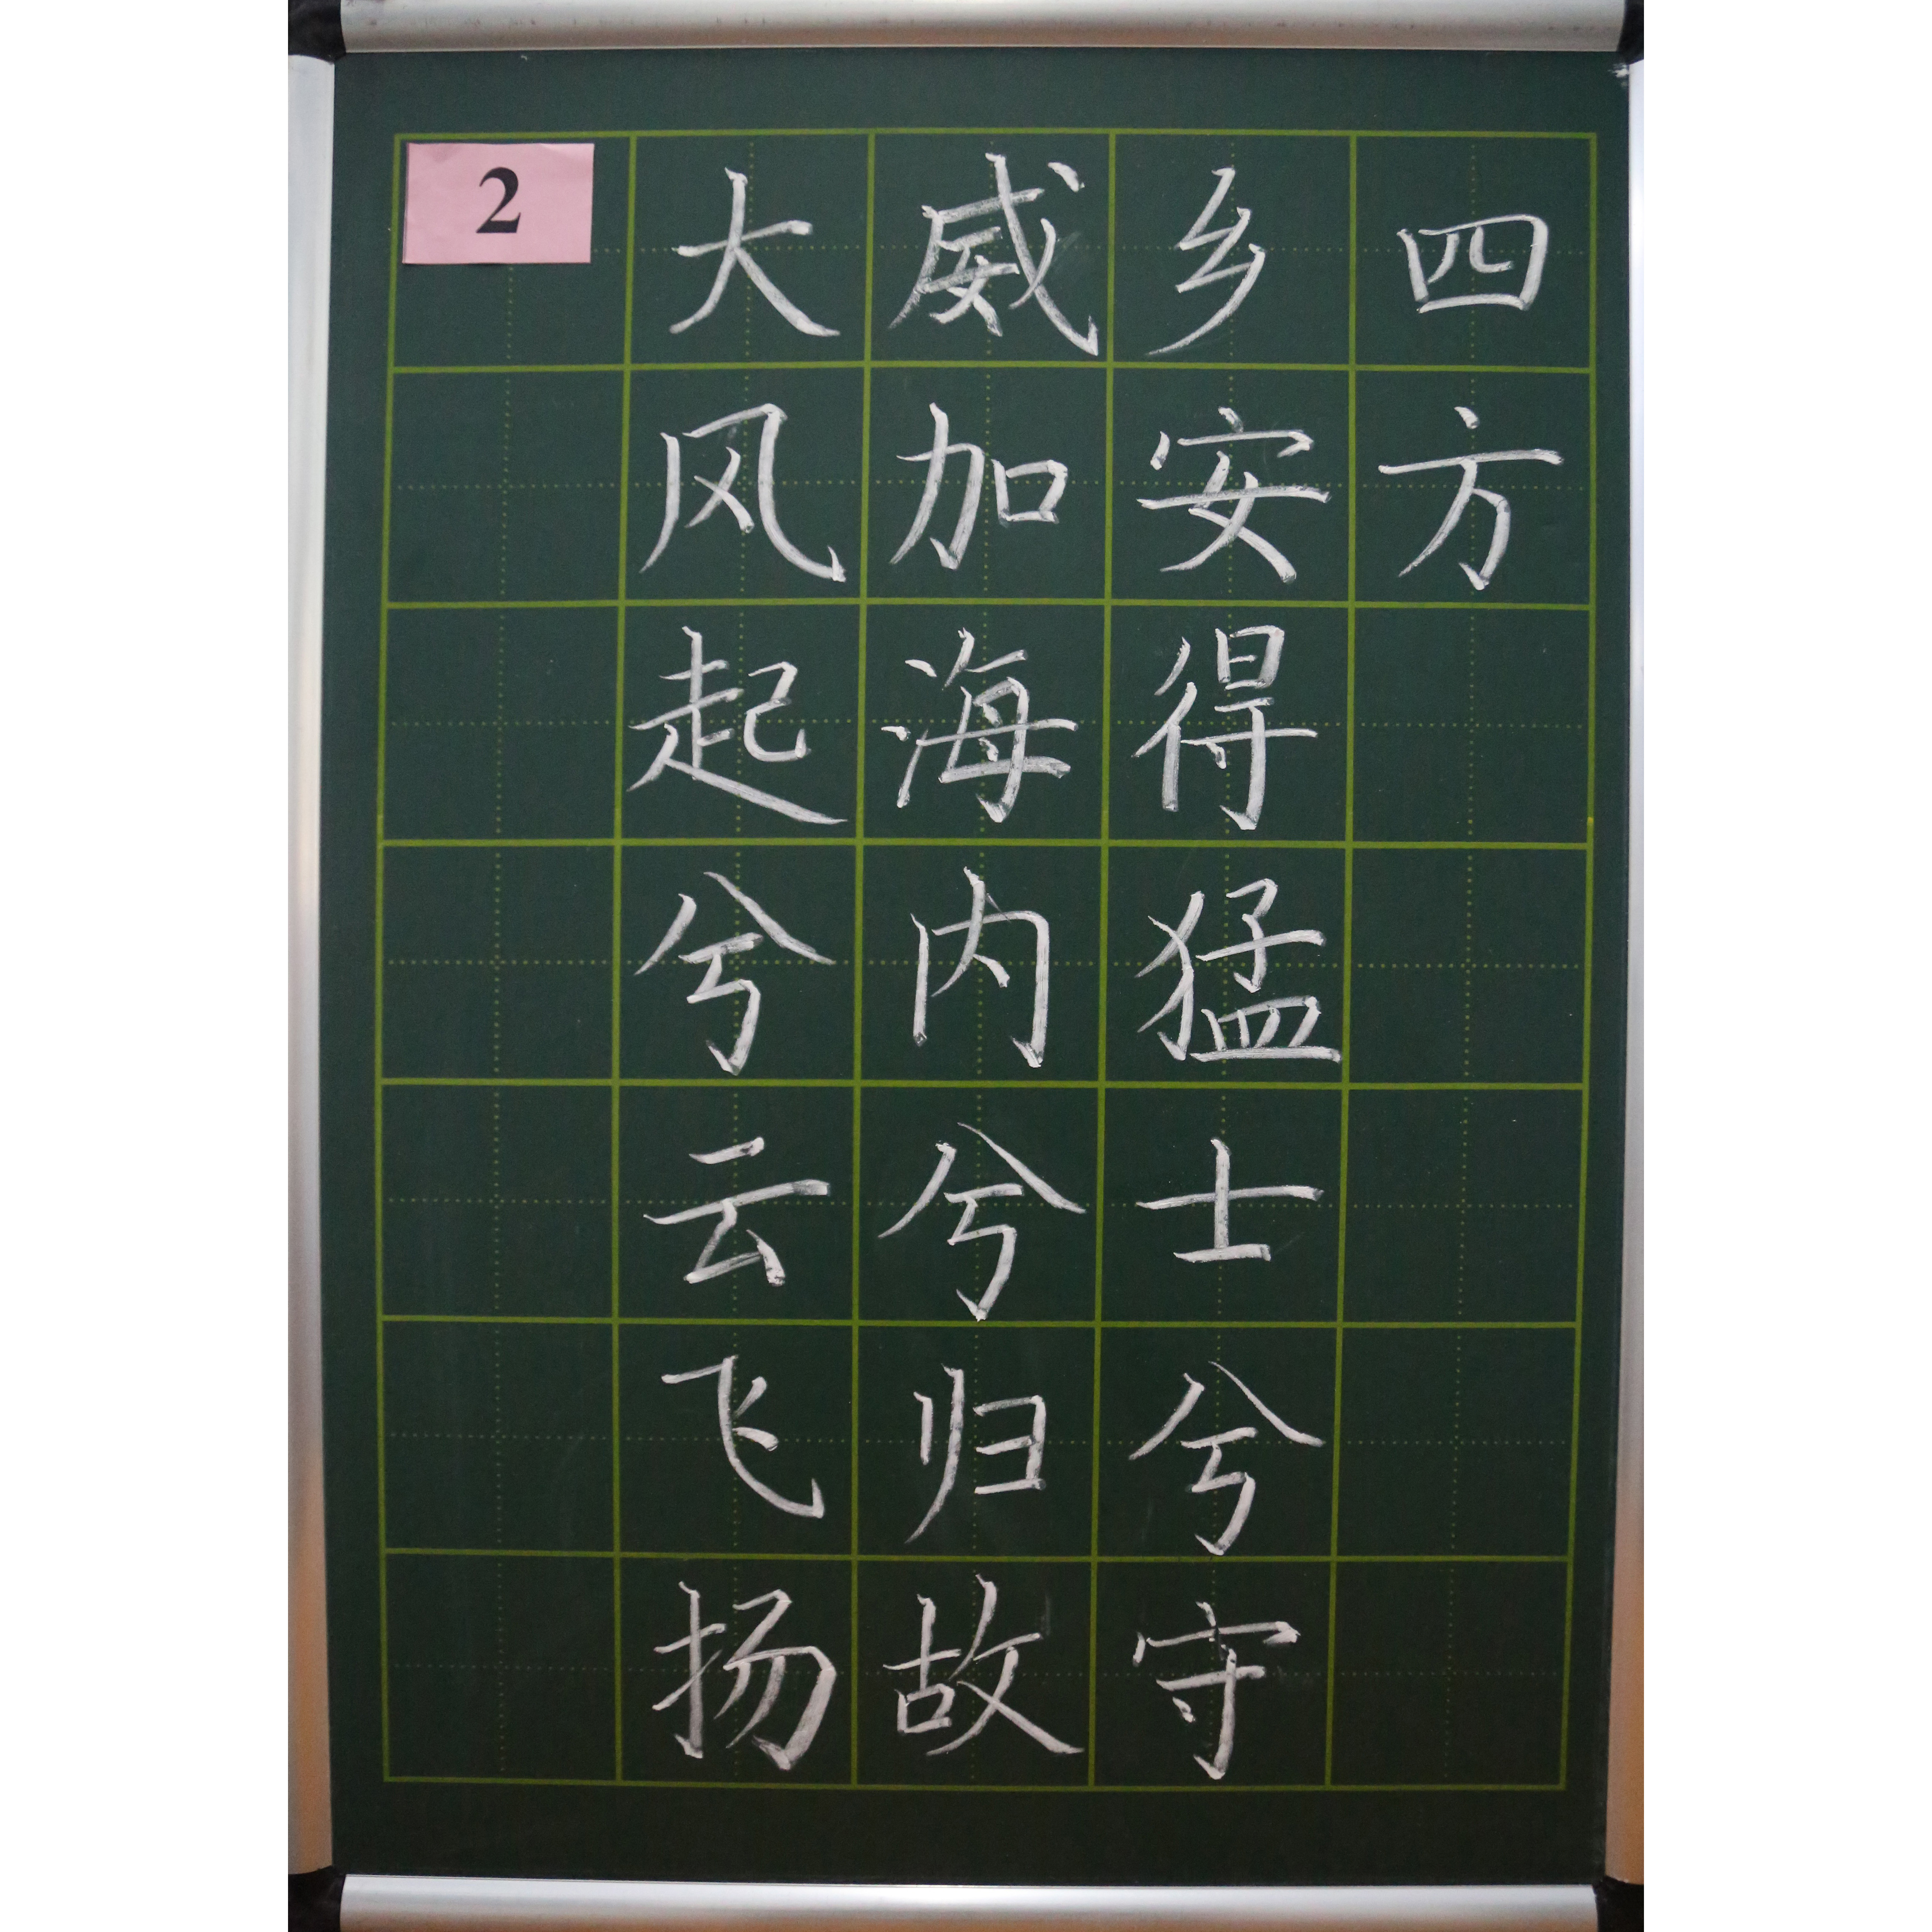 2
大风起兮云飞扬
威加海内兮归故
乡安得猛士兮守
四方